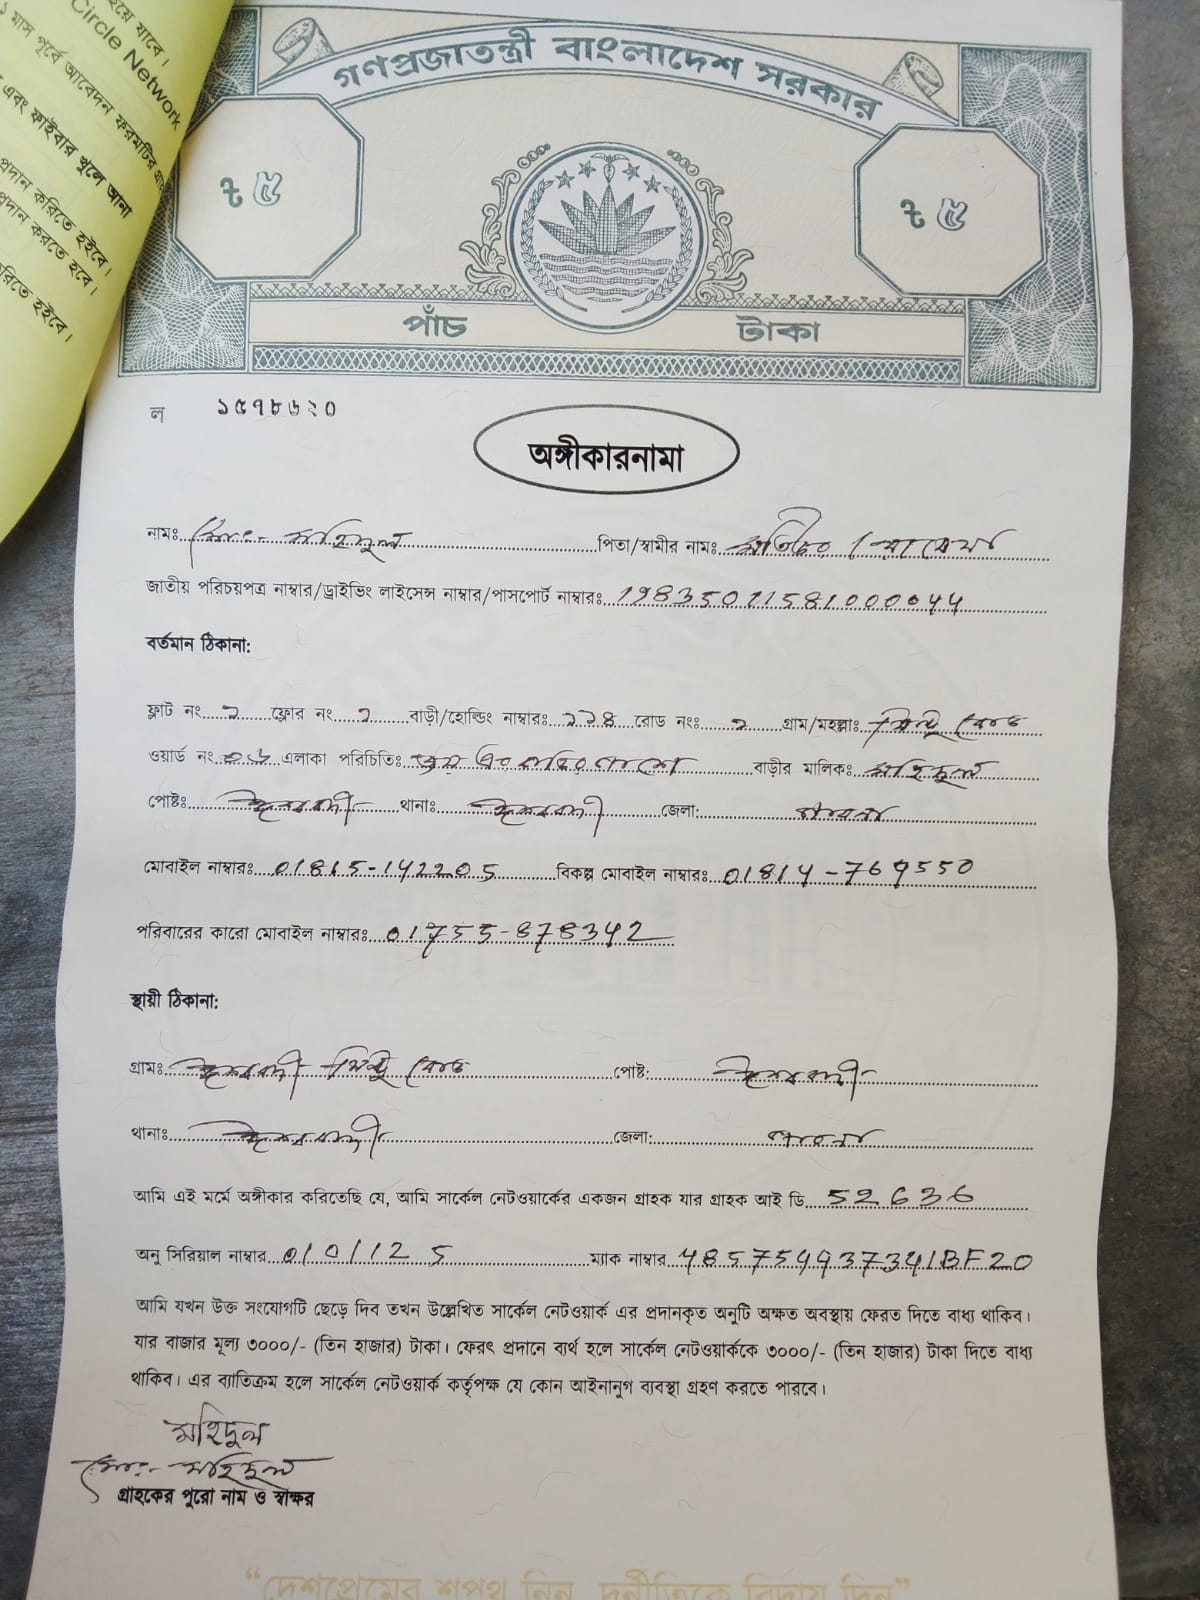 হয়ে যাবে।
Circle Network
১ মাস পূর্বে আবেদন ফরমটির
এবং ফাইবার খুলে আনা
প্রদান করিতে হইবে।
প্রদান করতে হবে।
রিতে হইবে।
গণপ্রজাতন্ত্রী বাংলাদেশ সরকার
৳ ৫ ৳ ৫
পাঁচ টাকা
ল ১৫৭৮৬২০
অঙ্গীকারনামা
নামঃ মোঃ- মহিদুল পিতা/স্বামীর নামঃ
জাতীয় পরিচয়পত্র নাম্বার/ড্রাইভিং লাইসেন্স নাম্বার/পাসপোর্ট নাম্বারঃ
বর্তমান ঠিকানা:
ফ্লাট নং ফ্লোর নং বাড়ী/হোল্ডিং নাম্বারঃ রোড নংঃ গ্রাম/মহল্লাঃ
ওয়ার্ড নং এলাকা পরিচিতিঃ বাড়ীর মালিকঃ মহিদুল
পোষ্টঃ ঈশ্বরদী থানাঃ ঈশ্বরদী জেলা: পাবনা
মোবাইল নাম্বারঃ 01815-142205 বিকল্প মোবাইল নাম্বারঃ 01814-769550
পরিবারের কারো মোবাইল নাম্বারঃ 01755-878342
স্থায়ী ঠিকানা:
গ্রামঃ ঈশ্বরদী পোষ্ট: ঈশ্বরদী
থানাঃ ঈশ্বরদী জেলা: পাবনা
আমি এই মর্মে অঙ্গীকার করিতেছি যে, আমি সার্কেল নেটওয়ার্কের একজন গ্রাহক যার গ্রাহক আই ডি 52636
অনু সিরিয়াল নাম্বার 010112 5 ম্যাক নাম্বার
আমি যখন উক্ত সংযোগটি ছেড়ে দিব তখন উল্লেখিত সার্কেল নেটওয়ার্ক এর প্রদানকৃত অনুটি অক্ষত অবস্থায় ফেরত দিতে বাধ্য থাকিব।
যার বাজার মূল্য ৩০০০/- (তিন হাজার) টাকা। ফেরৎ প্রদানে ব্যর্থ হলে সার্কেল নেটওয়ার্ককে ৩০০০/- (তিন হাজার) টাকা দিতে বাধ্য
থাকিব। এর ব্যাতিক্রম হলে সার্কেল নেটওয়ার্ক কর্তৃপক্ষ যে কোন আইনানুগ ব্যবস্থা গ্রহণ করতে পারবে।
মহিদুল
মোঃ- মহিদুল
গ্রাহকের পুরো নাম ও স্বাক্ষর
“দেশপ্রেমের শপথ নিন, দুর্নীতিকে বিদায় দিন”